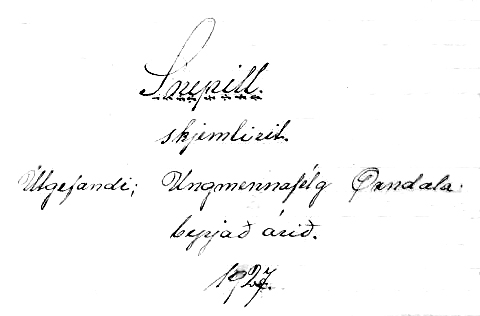 Snepill.
skemtirit.
Útgefandi; Ungmennafélg Öxndæla.
byrjað árið.
1927.